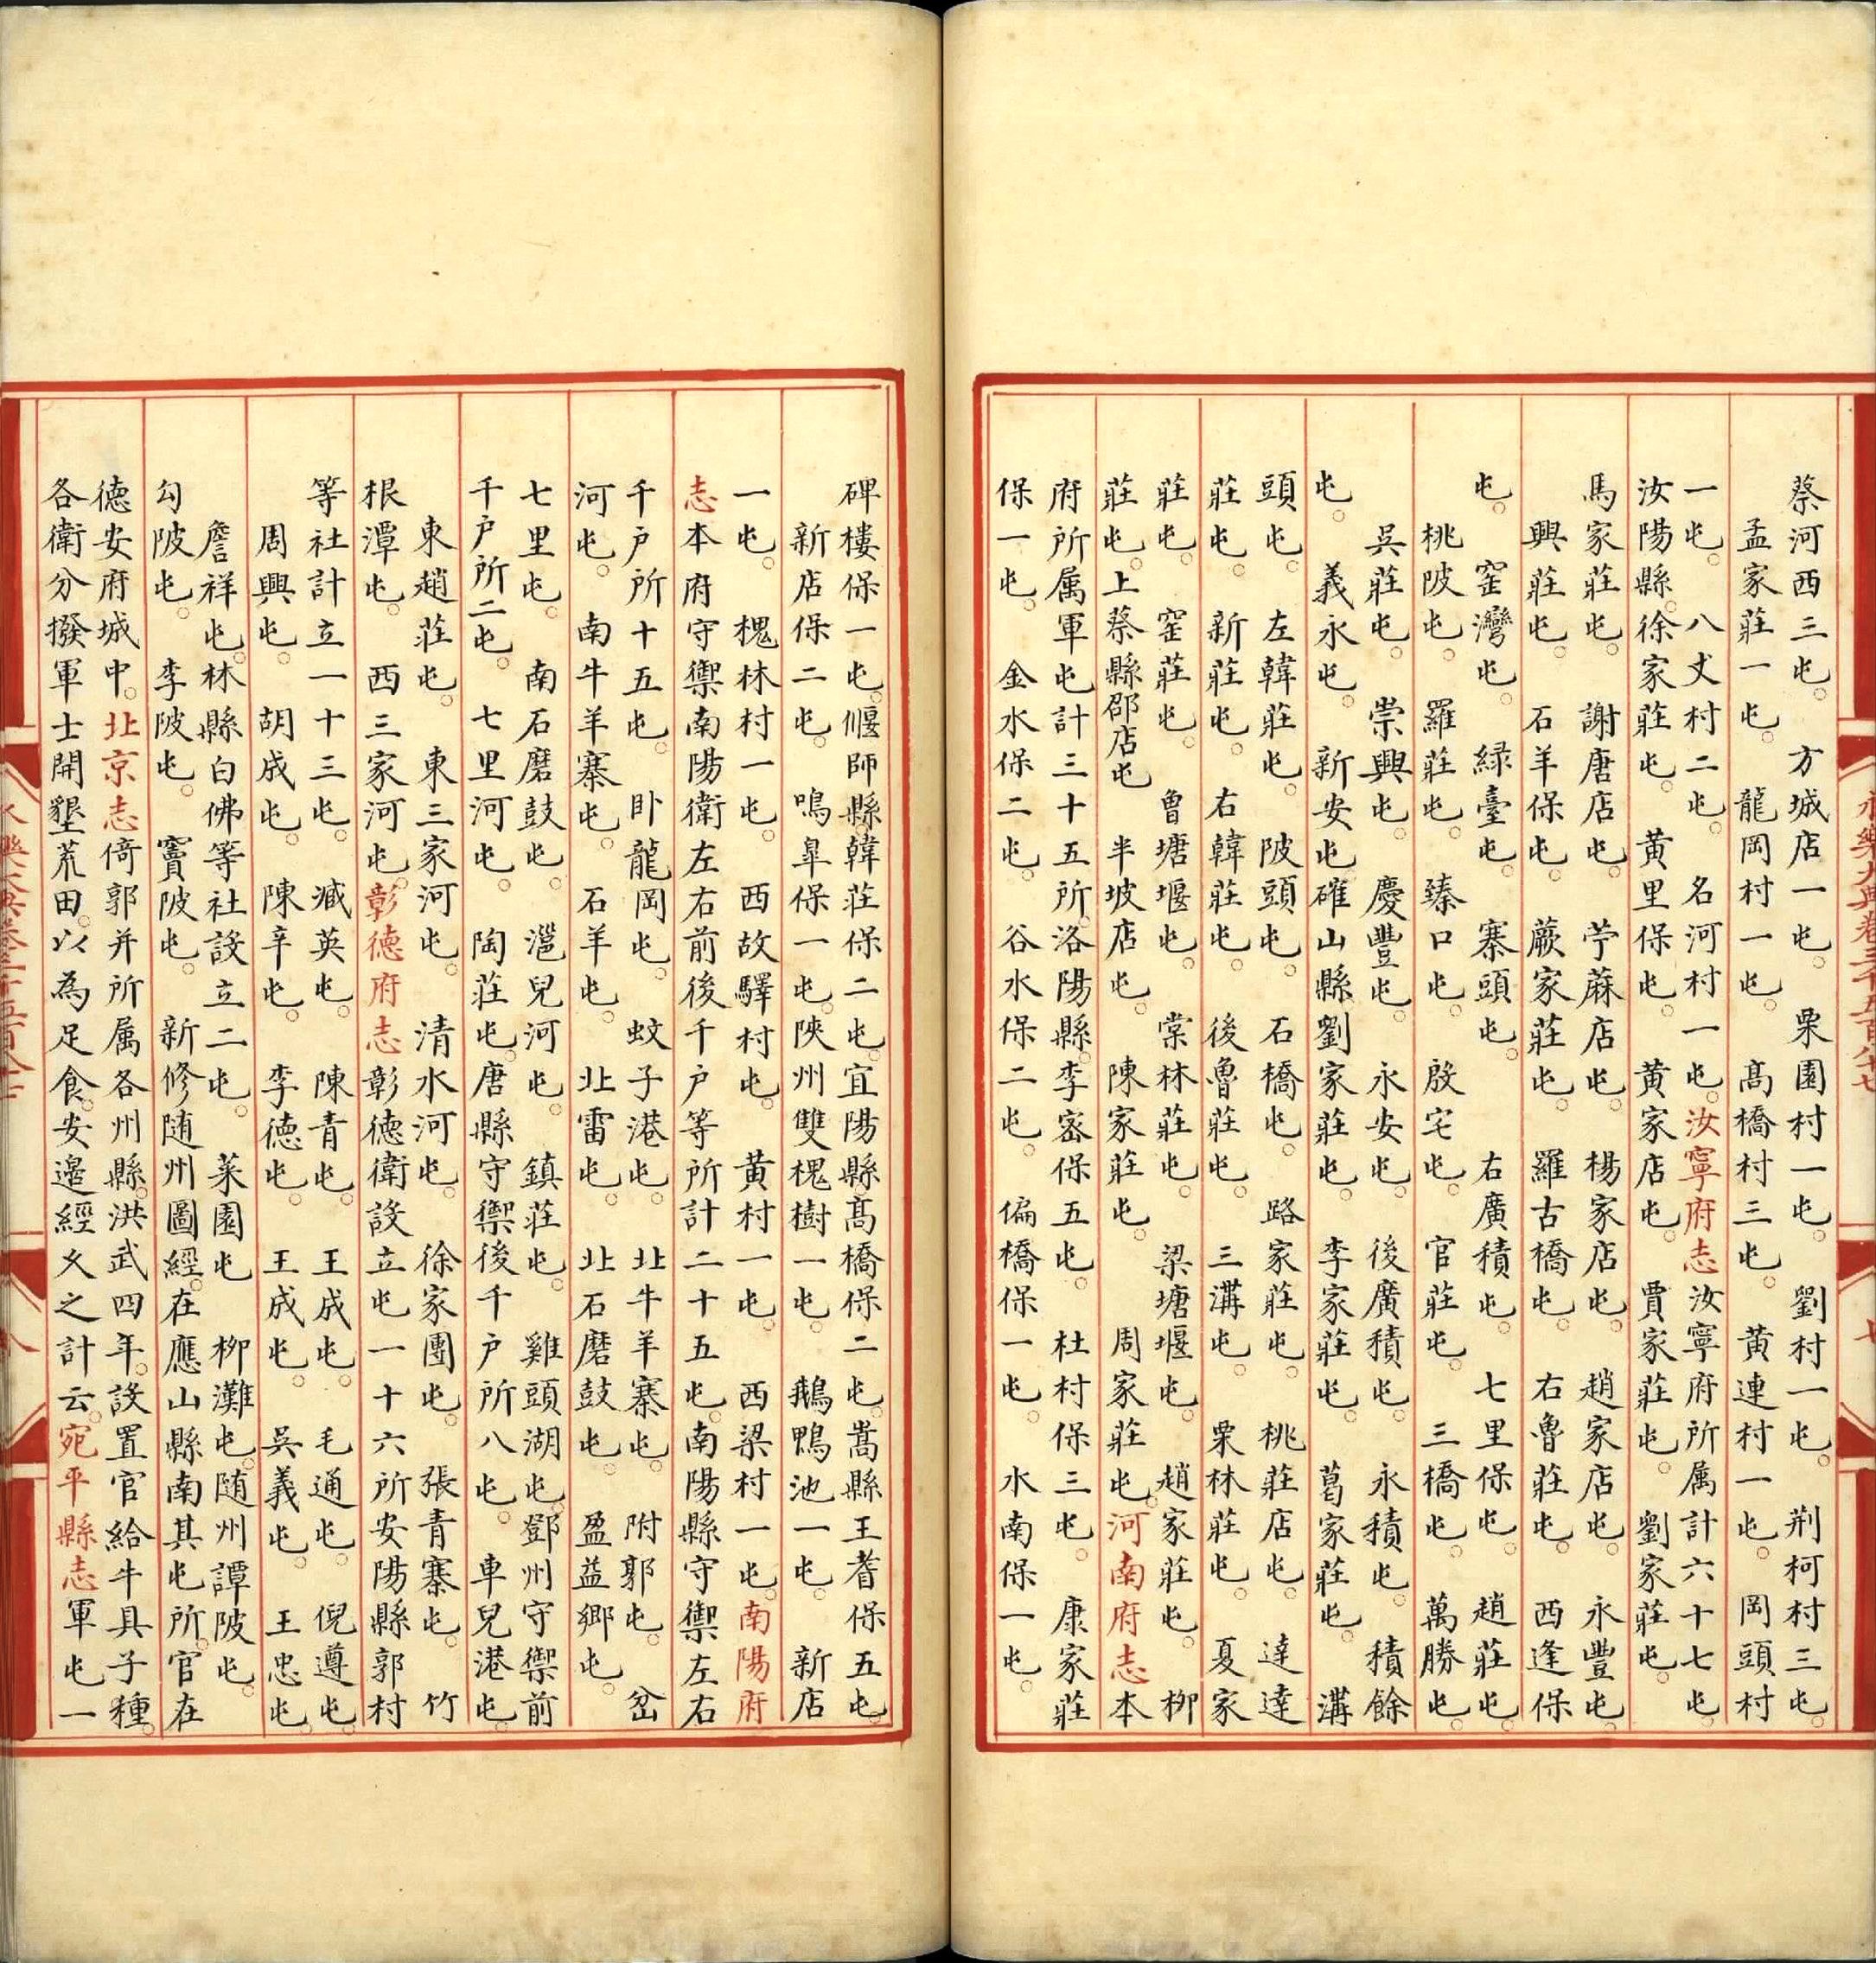 蔡河西三屯。方城店一屯。栗園村一屯。劉村一屯。荆柯村三屯。
孟家莊一屯。龍岡村一屯。髙橋村三屯。黄連村一屯。岡頭村
一屯。八丈村二屯。名河村一屯。汝寧府志汝寧府所属計六十七屯
汝陽縣。徐家莊屯。黄里保屯。黄家店屯。賈家莊屯。劉家莊屯。
馬家莊屯。謝唐店屯。苧蔴店屯。楊家店屯。趙家店屯。永豐屯。
興莊屯。石羊保屯。蕨家莊屯。羅古橋屯。右魯莊屯。西逢保
屯。窑灣屯。緑臺屯。寨頭屯。右廣積屯。七里保屯。趙莊屯。
桃陂屯。羅莊屯。臻口屯。殷宅屯。官莊屯。三橋屯。萬勝屯。
吳莊屯。崇興屯。慶豐屯。永安屯。後廣積屯。永積屯。積餘
屯。義永屯。新安屯確山縣劉家莊屯。李家莊屯。葛家莊屯。溝
頭屯。左韓莊屯。陂頭屯。石橋屯。路家莊屯。桃莊店屯。逹逹
莊屯。新莊屯。右韓莊屯。後魯莊屯。三溝屯。栗林莊屯。夏家
莊屯。窑莊屯。魯塘堰屯。棠林莊屯。梁塘堰屯。趙家莊屯。柳
莊屯。上蔡縣邵店屯半坡店屯。陳家莊屯。周家莊屯。河南府志本
府所属軍屯計三十五所。洛陽縣。李宻保五屯。杜村保三屯。康家莊
保一屯。金水保二屯。谷水保二屯。偏橋保一屯。水南保一屯。
碑樓保一屯。偃師縣。韓莊保二屯。宜陽縣髙橋保二屯。嵩縣王耆保五屯。
新店保二屯。鳴臯保一屯。陜州雙槐樹一屯。鵝鴨池一屯。新店
一屯。槐林村一屯。西故驛村屯。黄村一屯。西梁村一屯。南陽府
志本府守禦南陽衛左右前後千户等所計二十五屯。南陽縣守禦左右
千户所十五屯。卧龍岡屯。蚊子港屯。北牛羊寨屯。附郭屯。岔
河屯。南牛羊寨屯。石羊屯。北雷屯。北石磨鼓屯。盈益鄉屯。
七里屯。南石磨鼓屯。邋兒河屯。鎮莊屯。雞頭湖屯。鄧州守禦前
千户所二屯。七里河屯。陶莊屯。唐縣守禦後千户所八屯。車兒港屯。
東趙莊屯。東三家河屯。清水河屯。徐家團屯。張青寨屯。竹
根潭屯。西三家河屯。彰徳府志彰徳衛設立屯一十六所安陽縣郭村
等社計立一十三屯。臧英屯。陳青屯。王成屯。毛通屯。倪遵屯。
周興屯。胡成屯。陳辛屯。李徳屯。王成屯。吳義屯。王忠屯。
詹祥屯。林縣白佛等社設立二屯。菜園屯柳灘屯。随州譚陂屯。
勾陂屯。李陂屯。竇陂屯。新修随州圖經。在應山縣南其屯所。官在
德安府城中。北京志倚郭并所属各州縣。洪武四年。設置官給牛具子種。
各衛分撥軍士開墾荒田。以為足食。安邉經乆之計云。宛平縣志軍屯一